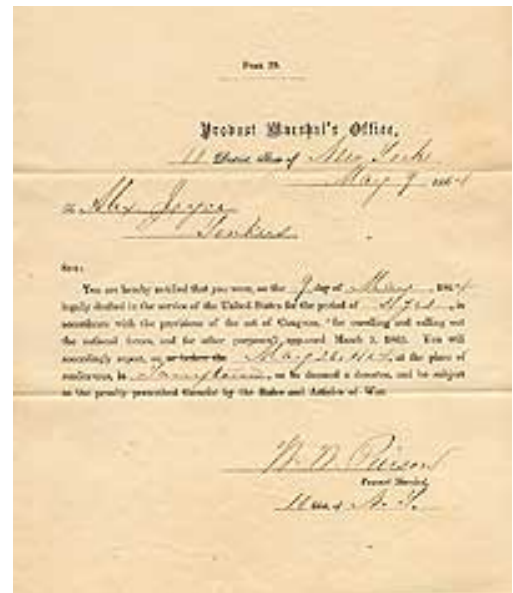 Form 39.
Provost Marshal's Office,
10 District, State of New York
May 9 1864
To Alex Joyce
Yonkers
SIR:
You are hereby notified that you were, on the 9 day of May, 1864
legally drafted in the service of the United States for the period of in
accordance with the provisions of the act of Congress, "for enrolling and calling out
the national forces, and for other purposes," approved March 3, 1863. You will
accordingly report, on or before the May at the place of
rendezvous, in Tarrytown, or be deemed a deserter, and be subject
to the penalty prescribed therefor by the Rules and Articles of War.
Pierson
Provost Marshal,
Dist. of N. Y.